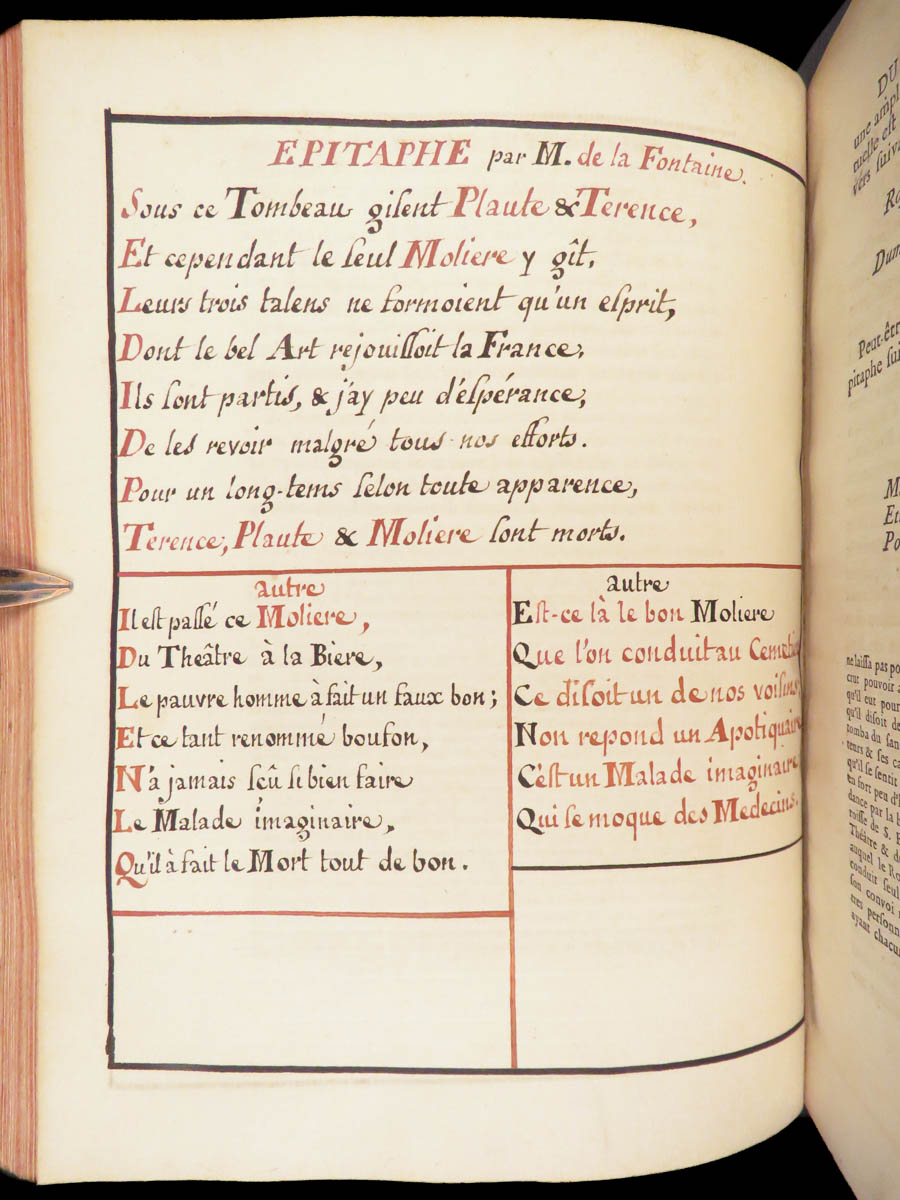 EPITAPHE par M. de la Fontaine.
Sous ce Tombeau gisent Plaute & Terence,
Et cependant le seul Moliere y gît,
Leurs trois talens ne formoient qu'un esprit,
Dont le bel Art rejouissoit la France,
Ils sont partis, & j'ay peu d'espérance,
De les revoir malgré tous nos efforts.
Pour un long-tems selon toute apparence,
Terence, Plaute & Moliere sont morts.
autre
Il est passé ce Moliere,
Du Theâtre à la Biere,
Le pauvre homme à fait un faux bon;
Et ce tant renommé boufon,
N'a jamais sçû si bien faire
Le Malade imaginaire,
Qu'il à fait le Mort tout de bon.
autre
Est-ce là le bon Moliere
Que l'on conduit au Cemeti
Ce disoit un de nos voisins,
Non repond un Apotiquaire
C'est un Malade imaginaire
Qui se moque des Medecins.
DU
une ampl
tuelle est
vers suiva
Dum
Peut-êtr
pitaphe sui
Et
Po
ne laissa pas po
crut pouvoir a
qu'il eut pour
qu'il disoit de
tomba du san
teurs & ses ca
qu'il se sentit
en fort peu d'
dance par la b
roisse de S. E
Théâtre & d
auquel le Ro
conduit seul
son convoi
eres personn
ayant chacun